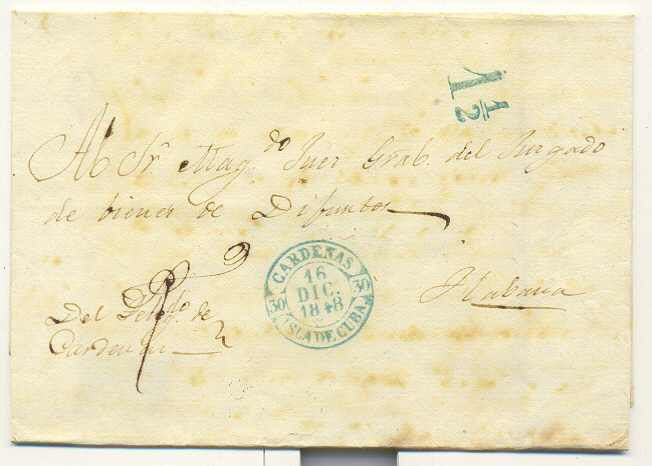 1 1/2
Al Sr. Mag.do Juez Gral. del Juzgado
de bienes de Difuntos
CARDENAS
16
DIC.
1848
30 30
ISLA DE CUBA.
Habana
Del de
Cardenas